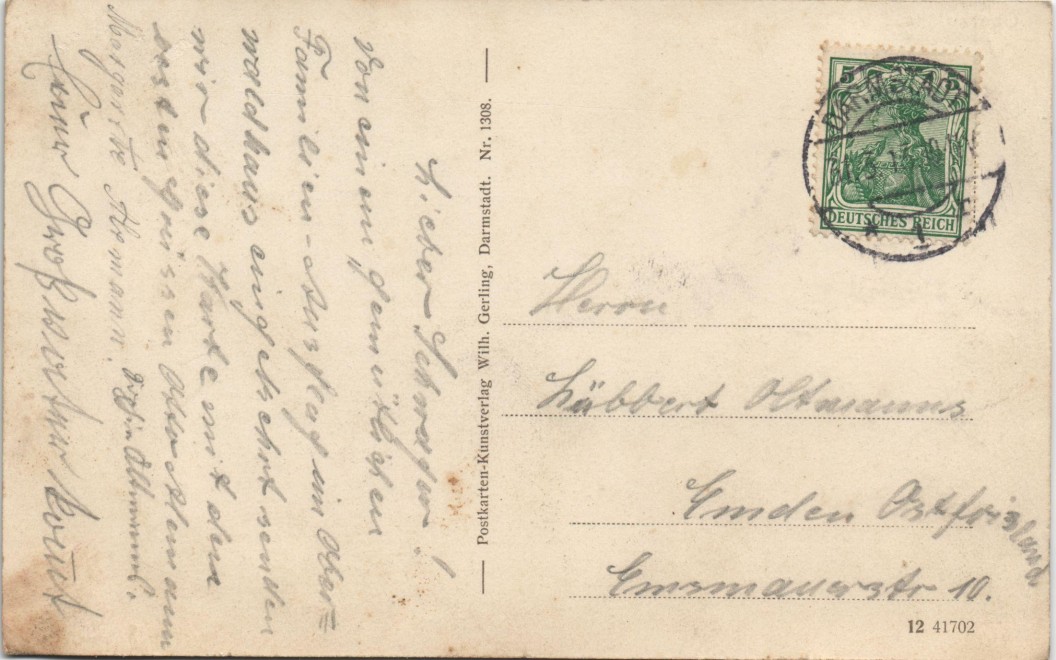 Lieber Schwager!
Von einem gemütlichen
Familien-Ausflug im Ober=
waldhaus eingekehrt senden
wir diese Karte mit den
besten Grüssen Otto Hemann
Margarete Hemann.
Postkarten-Kunstverlag Wilh. Gerling, Darmstadt. Nr. 1308.
5 5
DARMSTADT
* 1
DEUTSCHES REICH
Herrn
Lübbert Oltmanns
Emden Ostfriesland
Emsmauerstr 10.
12 41702